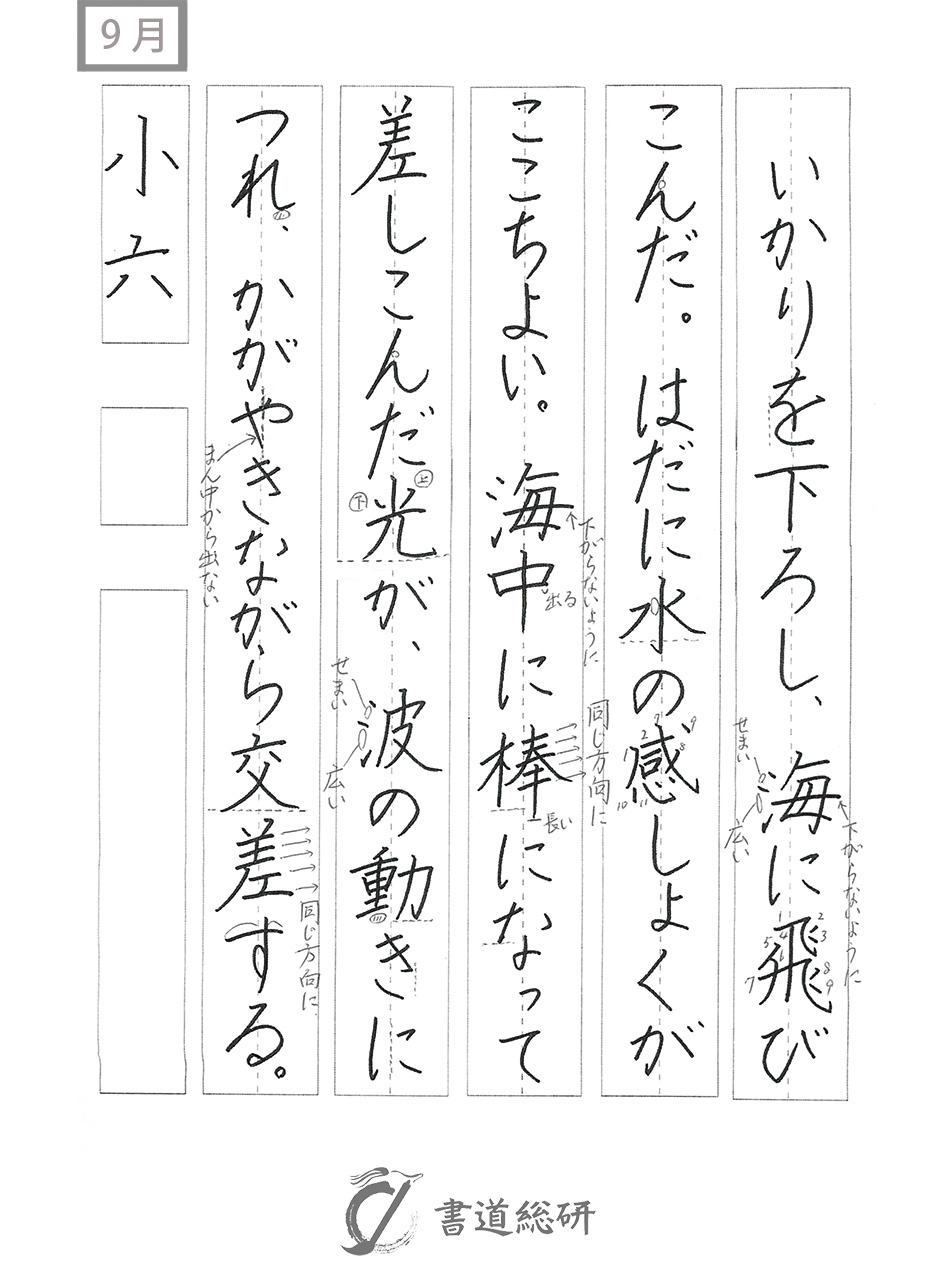 9月
いかりを下ろし、海に飛び
こんだ。はだに水の感しょくが
ここちよい。海中に棒になって
差しこんだ光が、波の動きに
つれ、かがやきながら交差する。
小六
せまい
広い
下がらないように
1
2
3
4
5
6
7
8
9
1
2
7
8
9
10
11
下がらないように
出る
同じ方向に
長い
上
下
せまい
広い
まん中から出ない
同じ方向に
書道総研